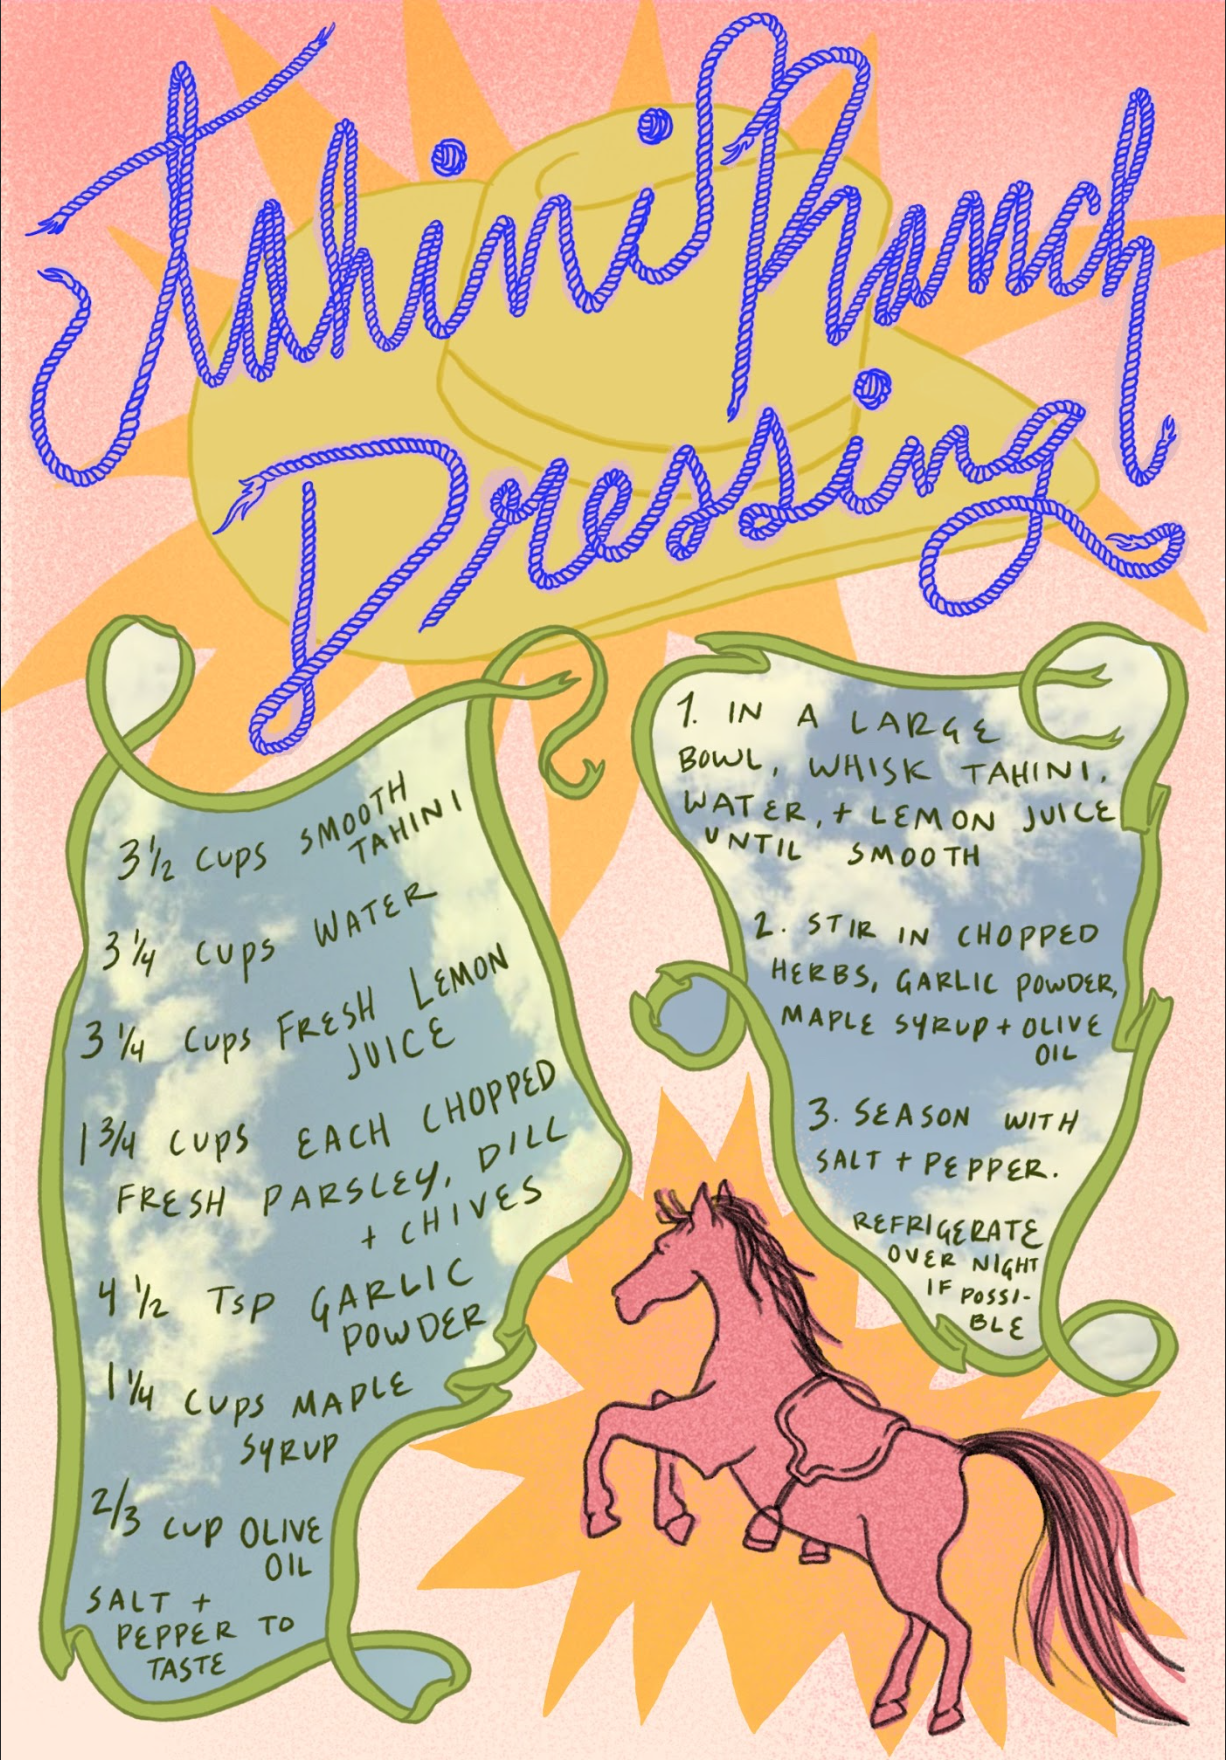 Tahini Ranch
Dressing
3 1/2 CUPS SMOOTH
TAHINI
3 1/4 CUPS WATER
3 1/4 CUPS FRESH LEMON
JUICE
1 3/4 CUPS EACH CHOPPED
FRESH PARSLEY, DILL
+ CHIVES
4 1/2 TSP GARLIC
POWDER
1 1/4 CUPS MAPLE
SYRUP
2/3 CUP OLIVE
OIL
SALT +
PEPPER TO
TASTE
1. IN A LARGE
BOWL, WHISK TAHINI,
WATER, + LEMON JUICE
UNTIL SMOOTH
2. STIR IN CHOPPED
HERBS, GARLIC POWDER,
MAPLE SYRUP + OLIVE
OIL
3. SEASON WITH
SALT + PEPPER.
REFRIGERATE
OVER NIGHT
IF POSSI-
BLE